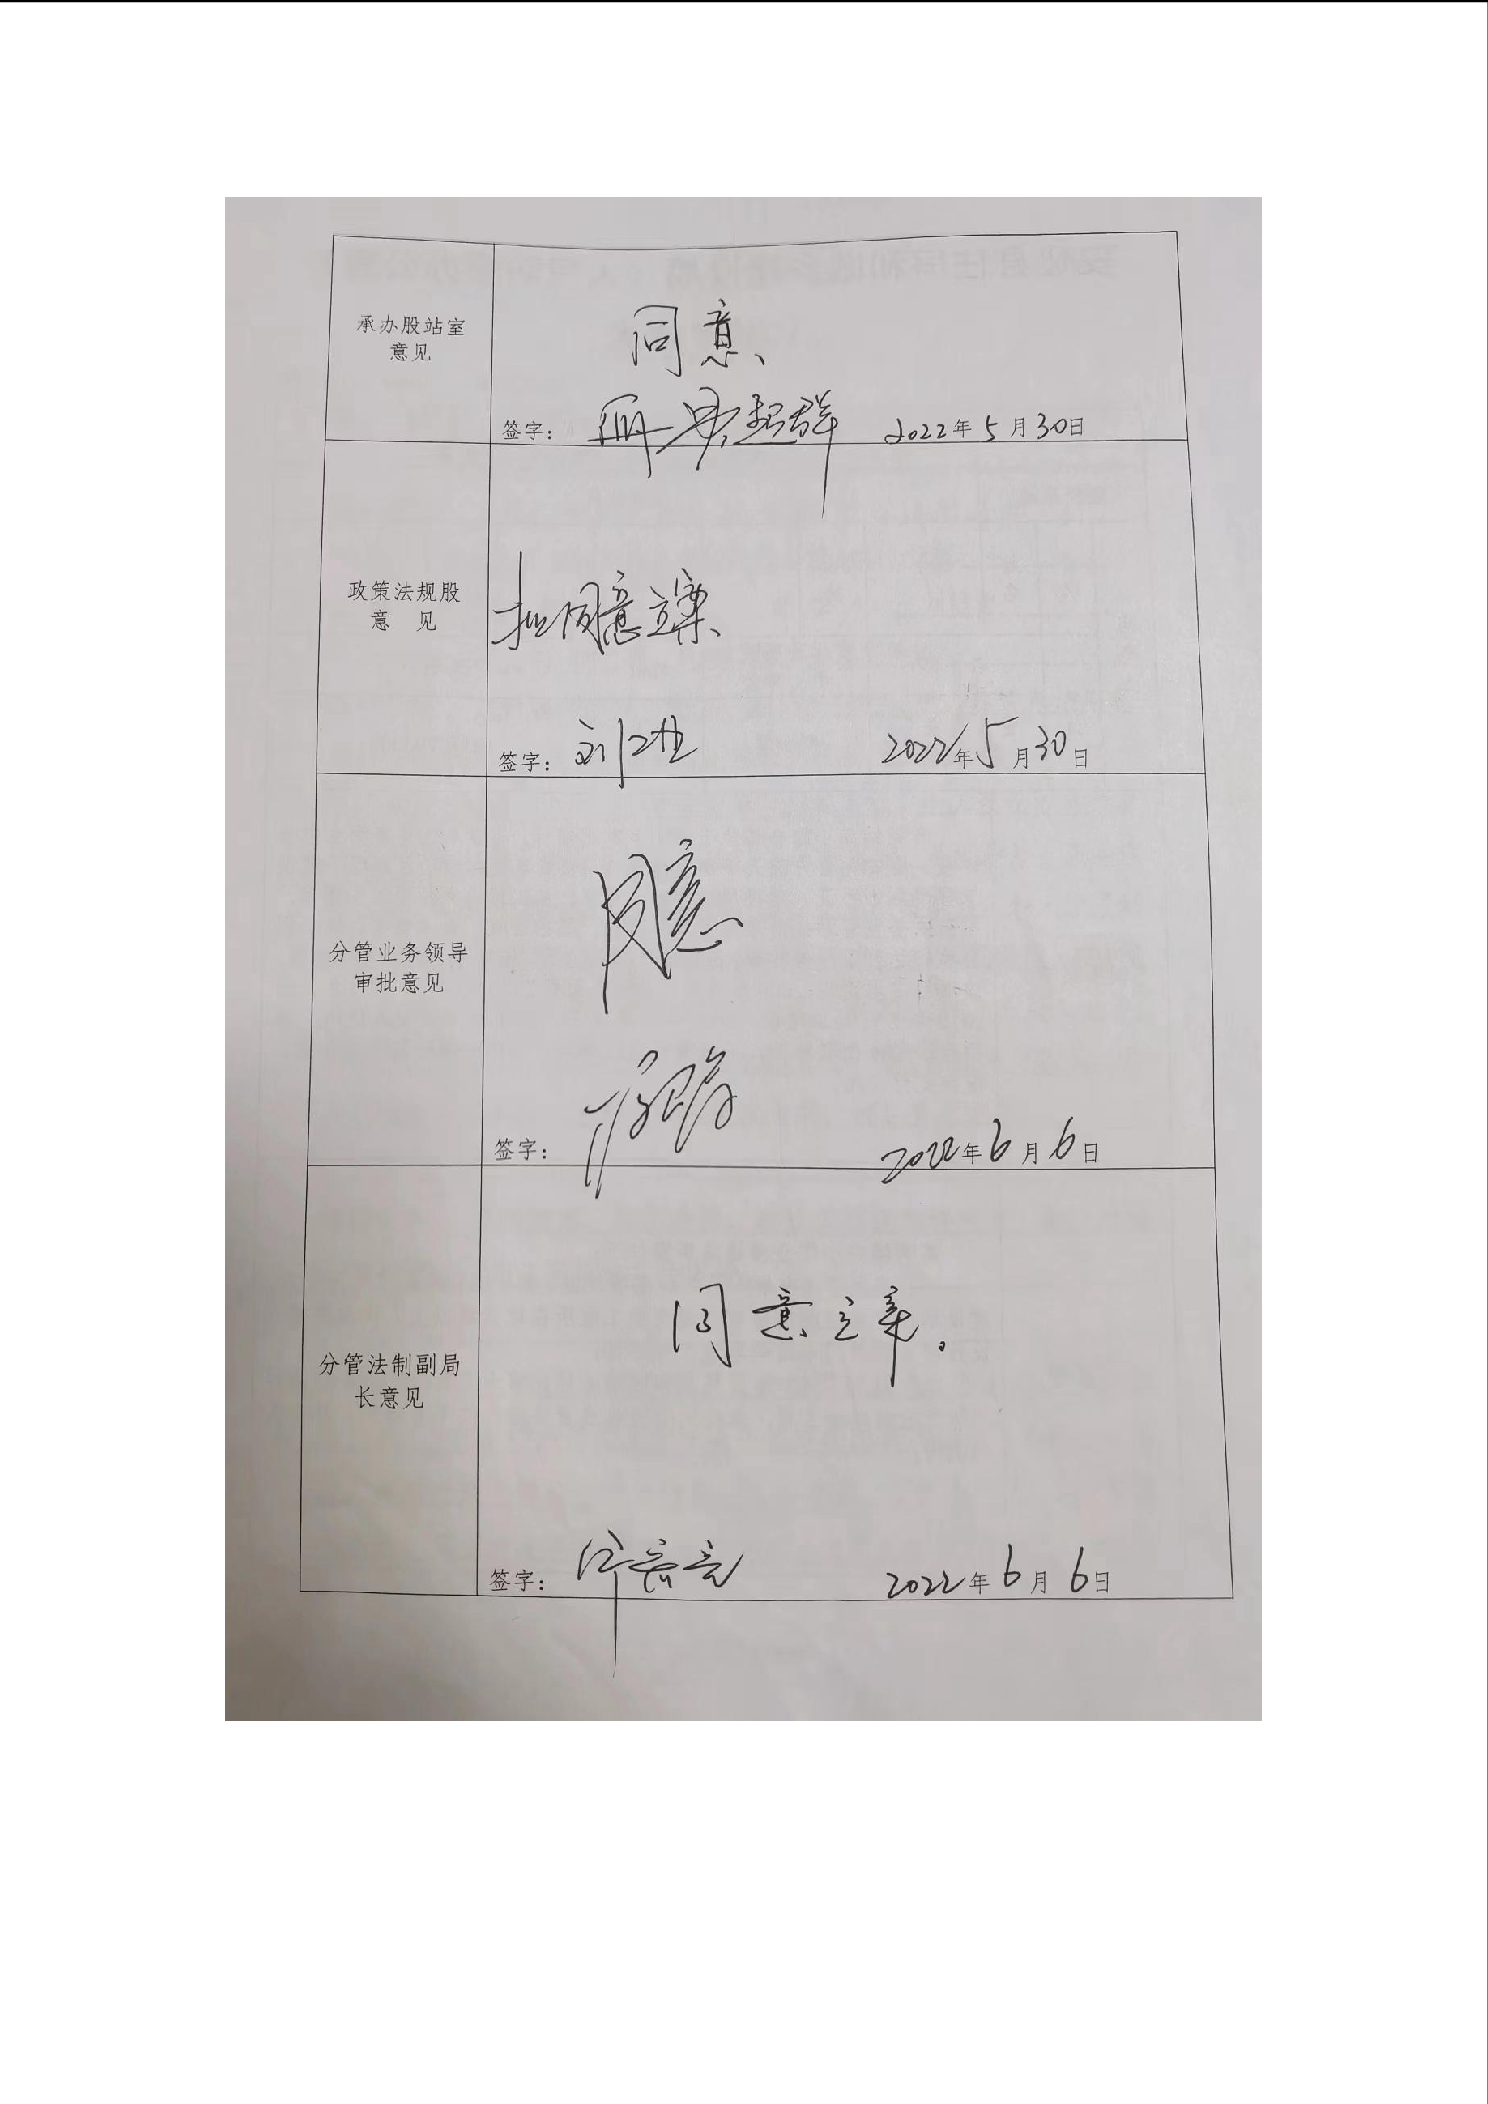 承办股站室
意见
同意、
签字： 2022年5月30日
政策法规股
意 见
拟同意立案、
签字： 2022年5月30日
分管业务领导
审批意见
同意
签字： 2022年6月6日
分管法制副局
长意见
同意立案。
签字： 2022年6月6日